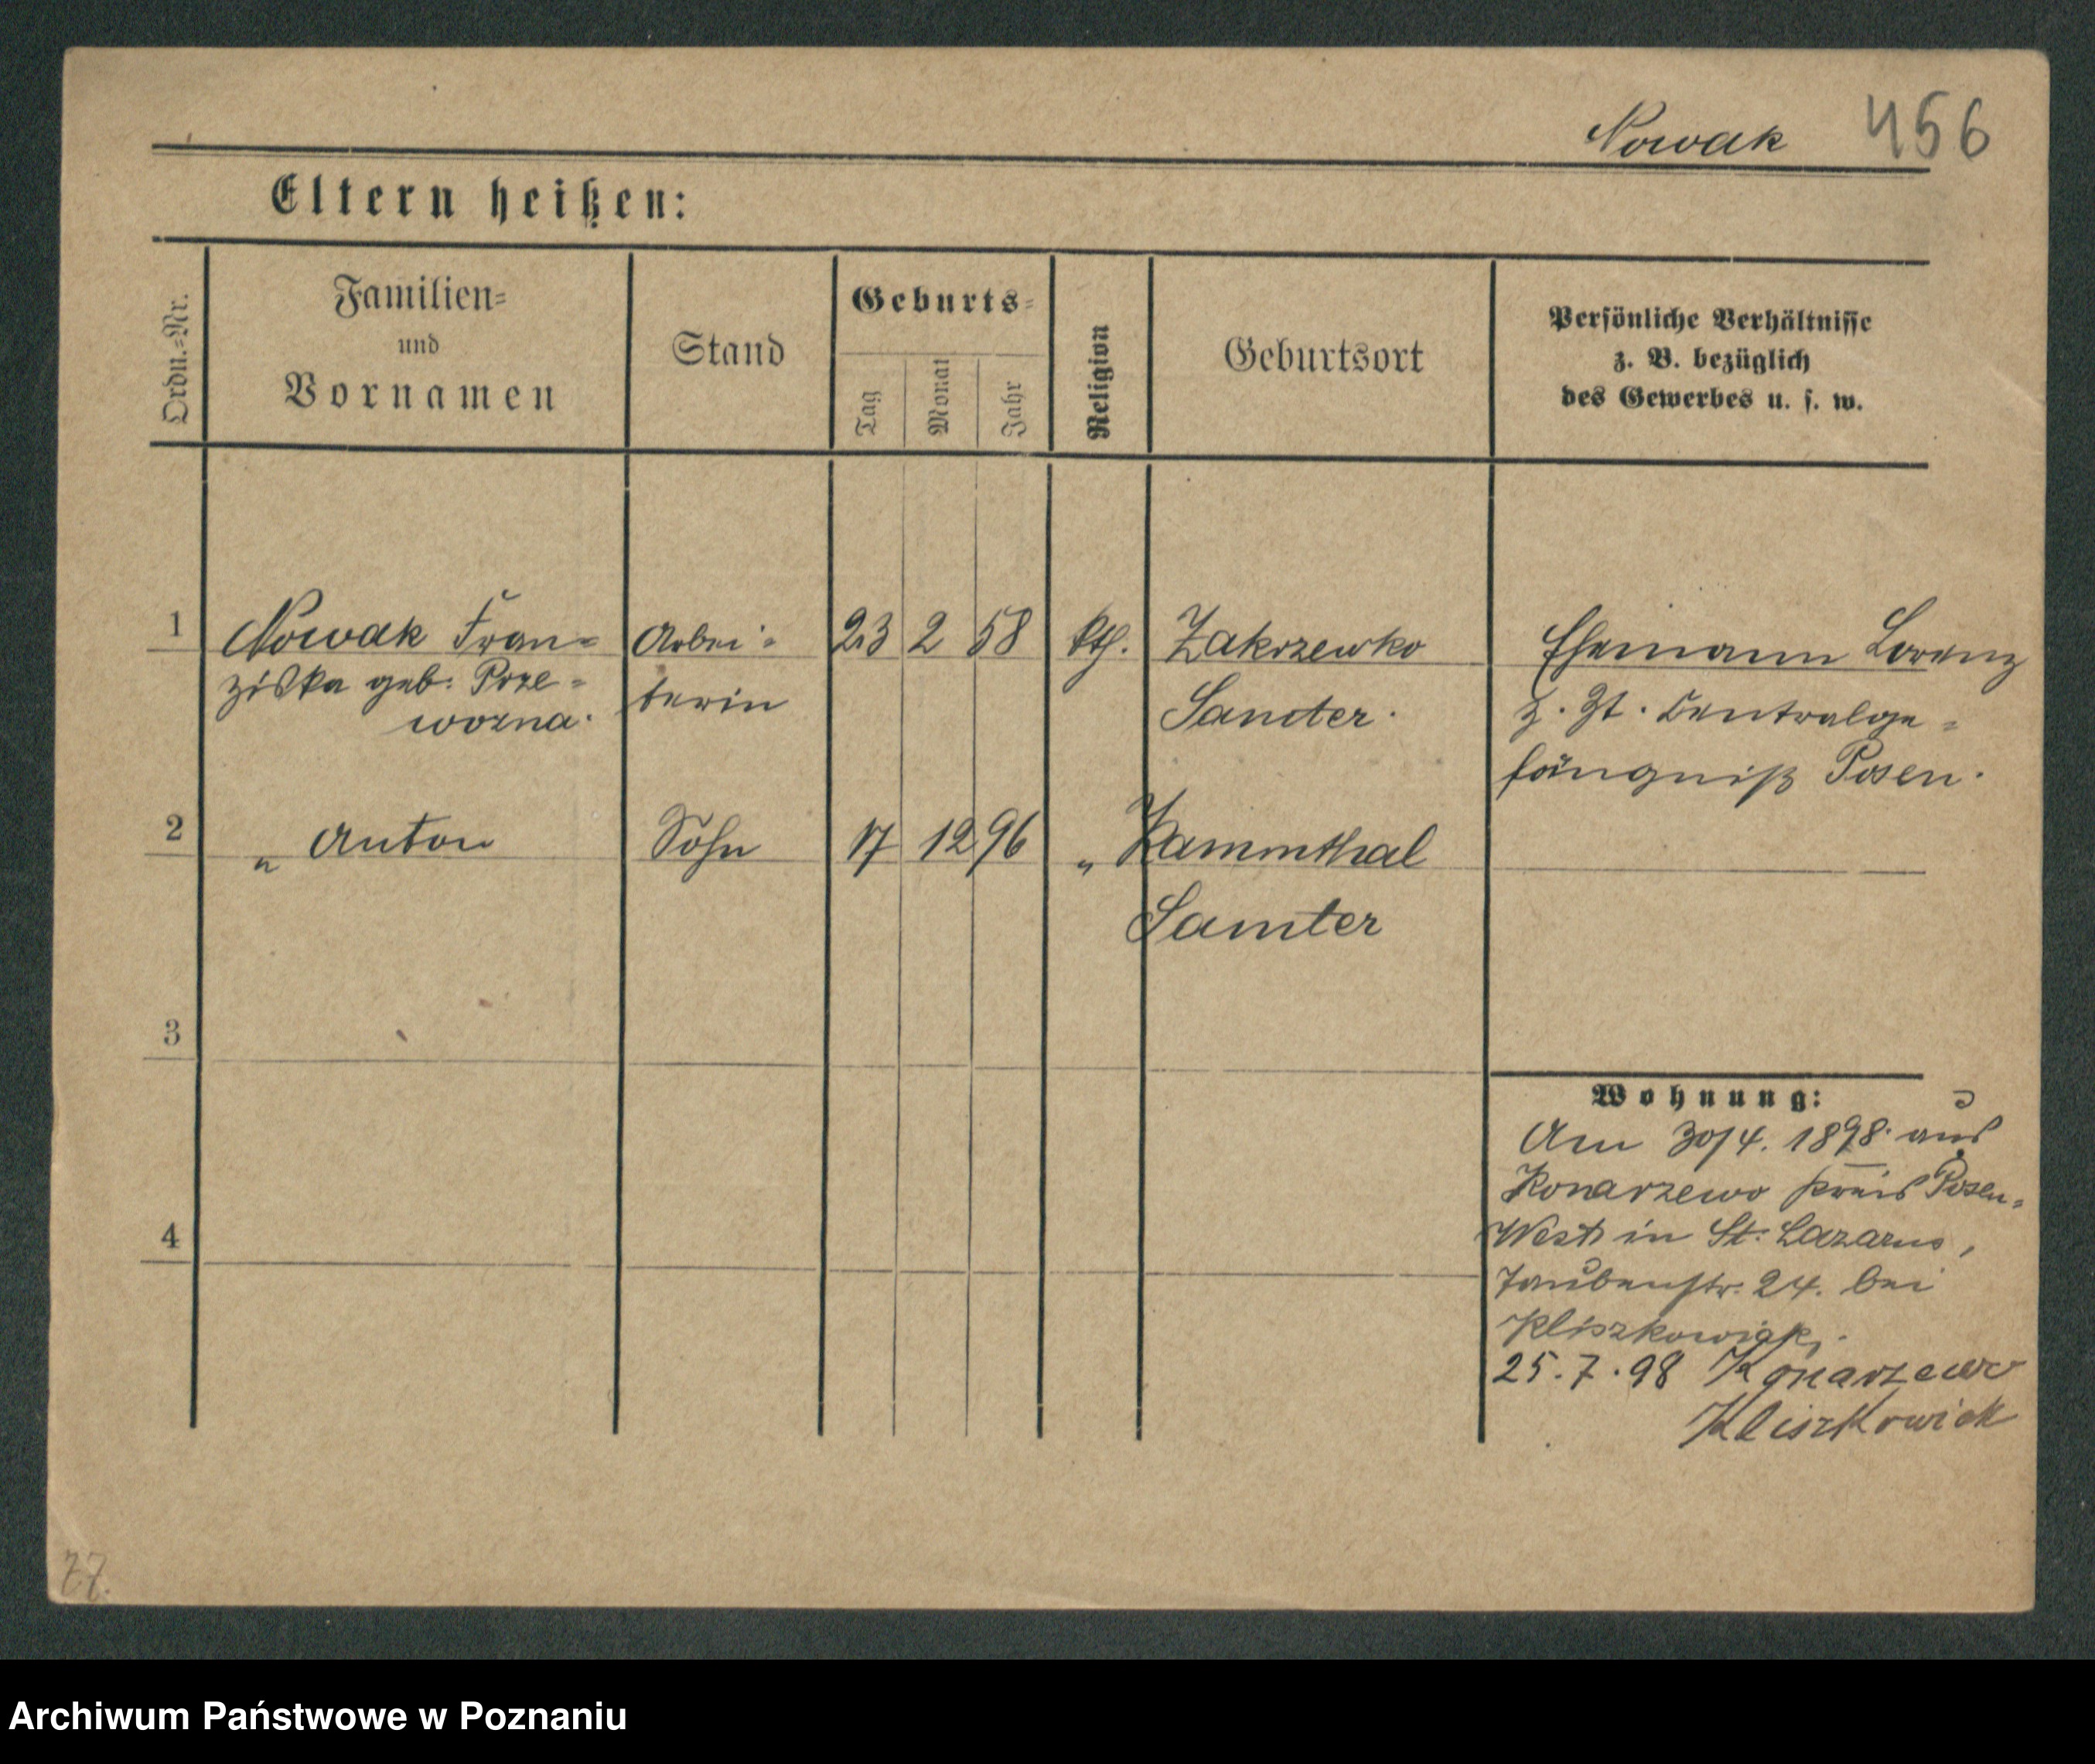 Nowak 456
Eltern heißen:
Ordn.-Nr.
Familien-
und
Vornamen
Stand
Geburts-
Tag
Monat
Jahr
Religion
Geburtsort
Persönliche Verhältnisse
z. B. bezüglich
des Gewerbes u. s. w.
1 Nowak Fran- Arbei- 23 2 58 kth. Zakrzewko Ehemann Lorenz
ziska geb. Prze- terin Samter. z. Zt. Centralge-
wozna. fängniß Posen.
2 " Anton Sohn 17 12 96 " Kammthal
Samter
3
Wohnung:
Am 30/4. 1898. aus
Konarzewo Kreis Posen-
4 West in St. Lazarus,
Taubenstr. 24. bei
Kliszkowiak.
25.7.98 Konarzewo
Kliszkowiak
77.
Archiwum Państwowe w Poznaniu